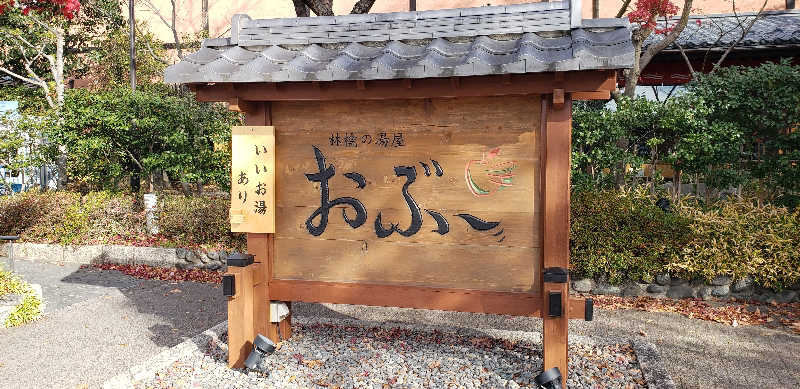 林檎の湯屋
おぶ～
いいお湯
あり